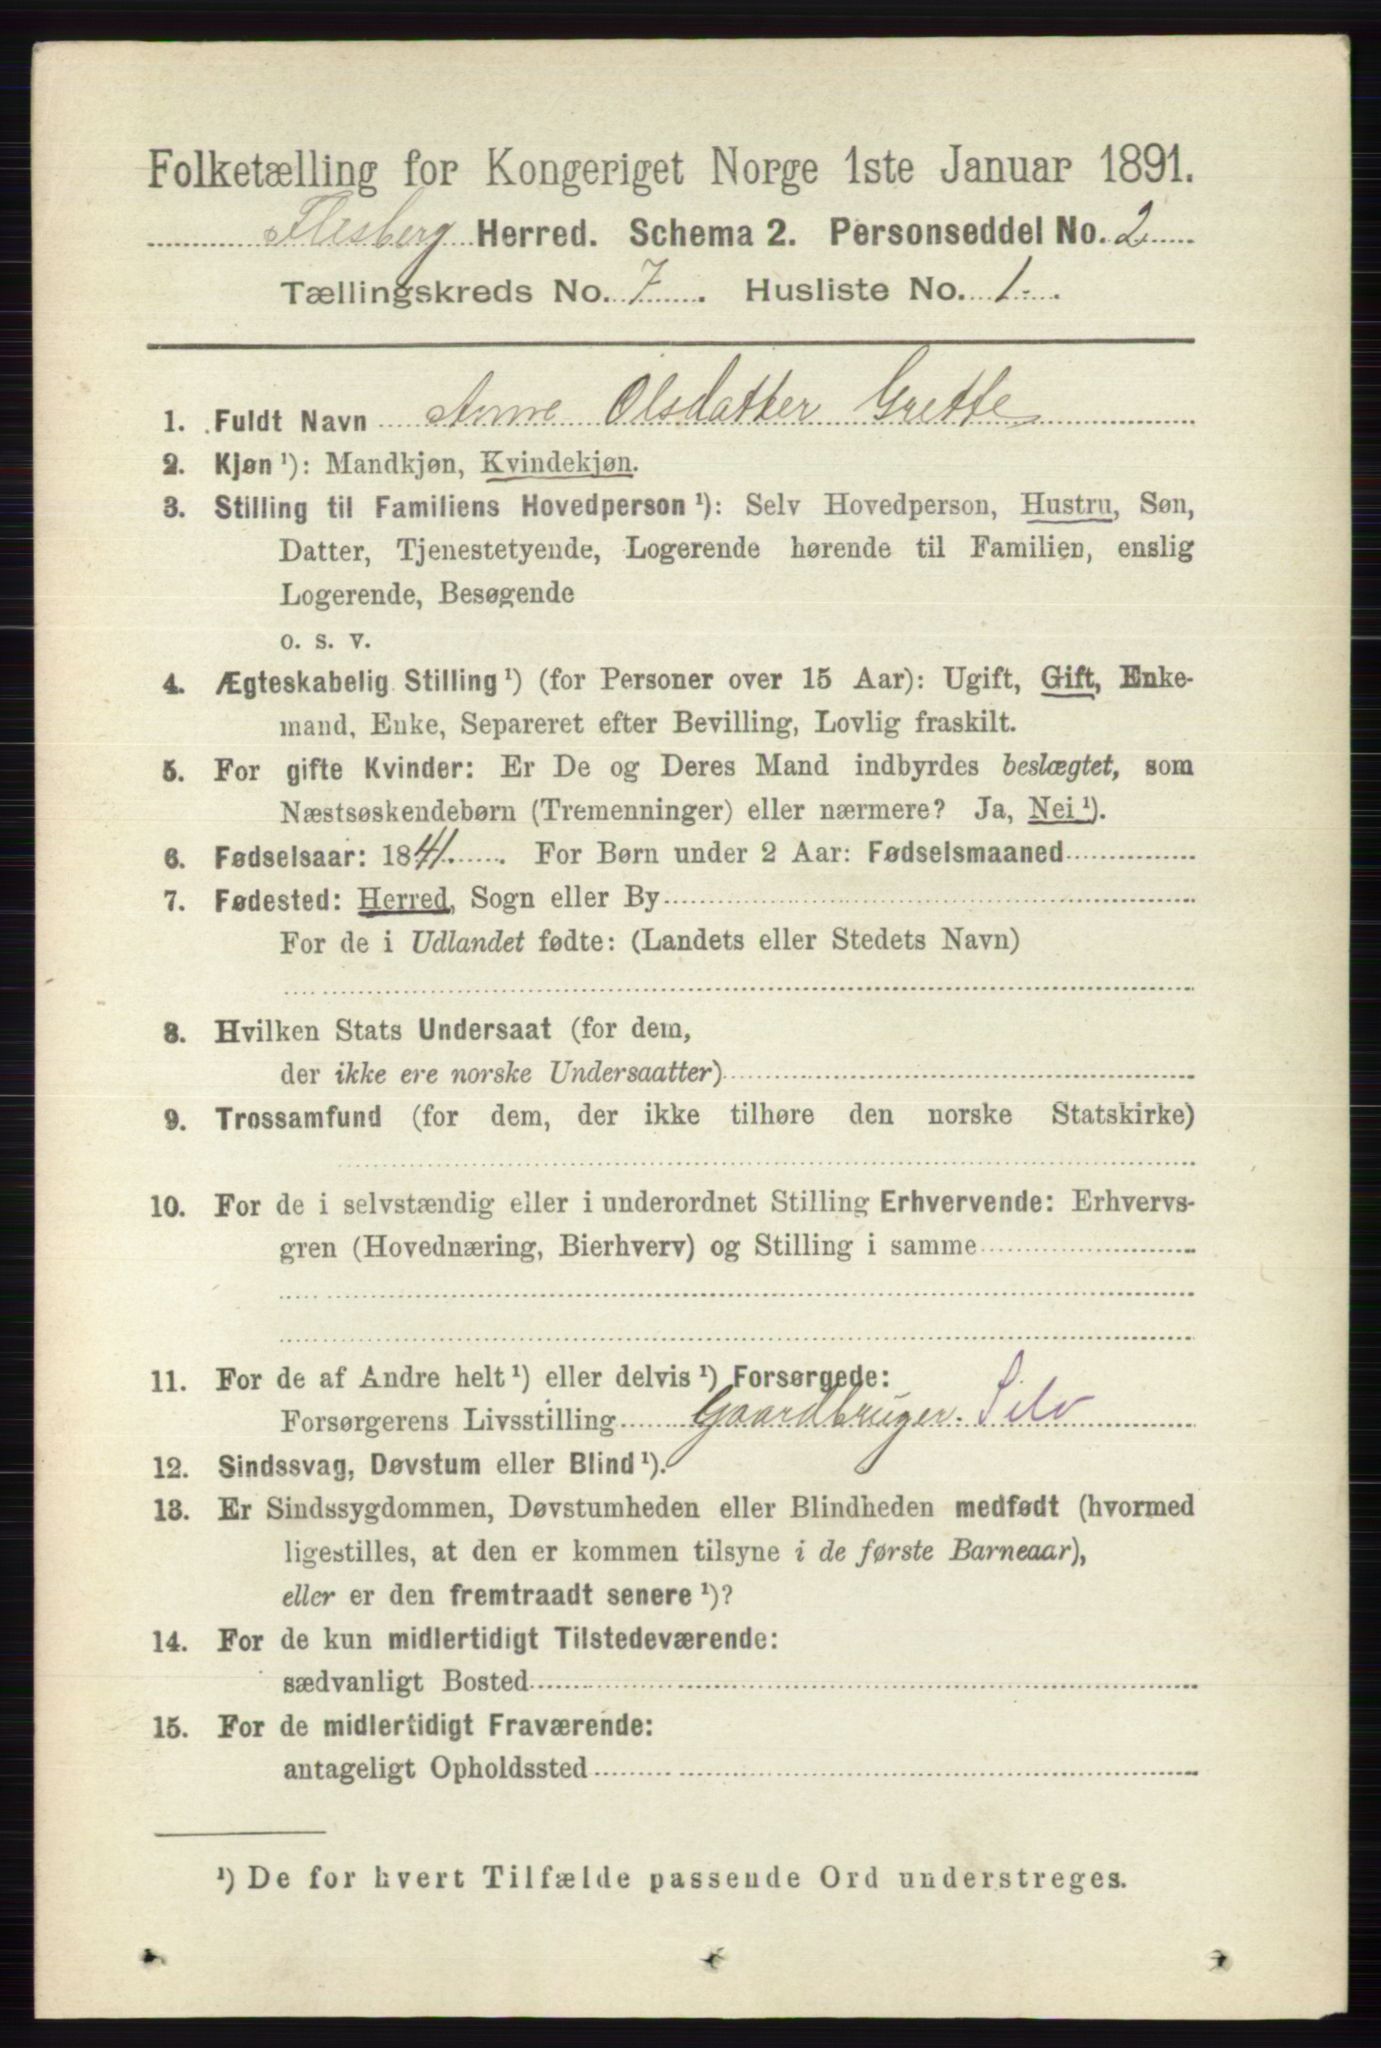 Folketælling for Kongeriget Norge 1ste Januar 1891.
Flesberg Herred. Schema 2. Personseddel No. 2
Tællingskreds No. 7. Husliste No. 1.
1. Fuldt Navn Anne Olsdatter Grette
2. Kjøn ¹): Mandkjøn, Kvindekjøn.
3. Stilling til Familiens Hovedperson ¹): Selv Hovedperson, Hustru, Søn,
Datter, Tjenestetyende, Logerende hørende til Familien, enslig
Logerende, Besøgende
o. s. v.
4. Ægteskabelig Stilling ¹) (for Personer over 15 Aar): Ugift, Gift, Enke-
mand, Enke, Separeret efter Bevilling, Lovlig fraskilt.
5. For gifte Kvinder: Er De og Deres Mand indbyrdes beslægtet, som
Næstsøskendebørn (Tremenninger) eller nærmere? Ja, Nei ¹).
6. Fødselsaar: 1841. For Børn under 2 Aar: Fødselsmaaned
7. Fødested: Herred, Sogn eller By
For de i Udlandet fødte: (Landets eller Stedets Navn)
8. Hvilken Stats Undersaat (for dem,
der ikke ere norske Undersaatter)
9. Trossamfund (for dem, der ikke tilhøre den norske Statskirke)
10. For de i selvstændig eller i underordnet Stilling Erhvervende: Erhvervs-
gren (Hovednæring, Bierhverv) og Stilling i samme
11. For de af Andre helt ¹) eller delvis ¹) Forsørgede:
Forsørgerens Livsstilling Gaardbruger. Selv
12. Sindssvag, Døvstum eller Blind ¹).
13. Er Sindssygdommen, Døvstumheden eller Blindheden medfødt (hvormed
ligestilles, at den er kommen tilsyne i de første Barneaar),
eller er den fremtraadt senere ¹)?
14. For de kun midlertidigt Tilstedeværende:
sædvanligt Bosted
15. For de midlertidigt Fraværende:
antageligt Opholdssted
¹) De for hvert Tilfælde passende Ord understreges.